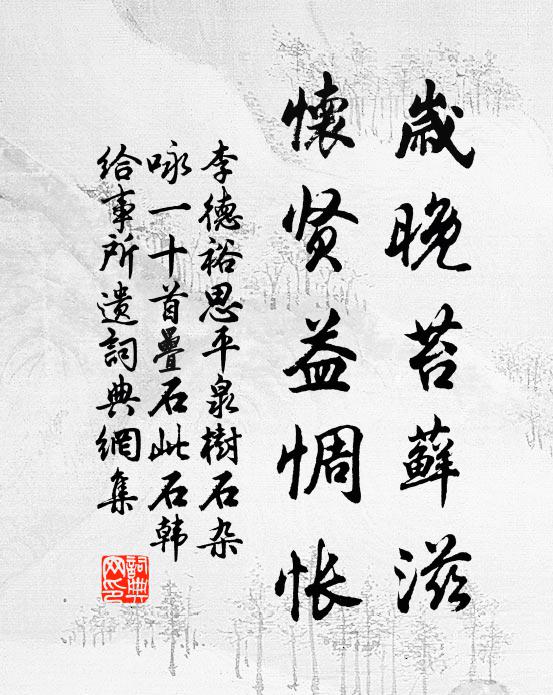 歲晚苔蘚滋
懷贤益惆怅
李德裕思平泉樹石杂
咏一十首疊石此石韩
给事所遗詞典網集
詞典网印